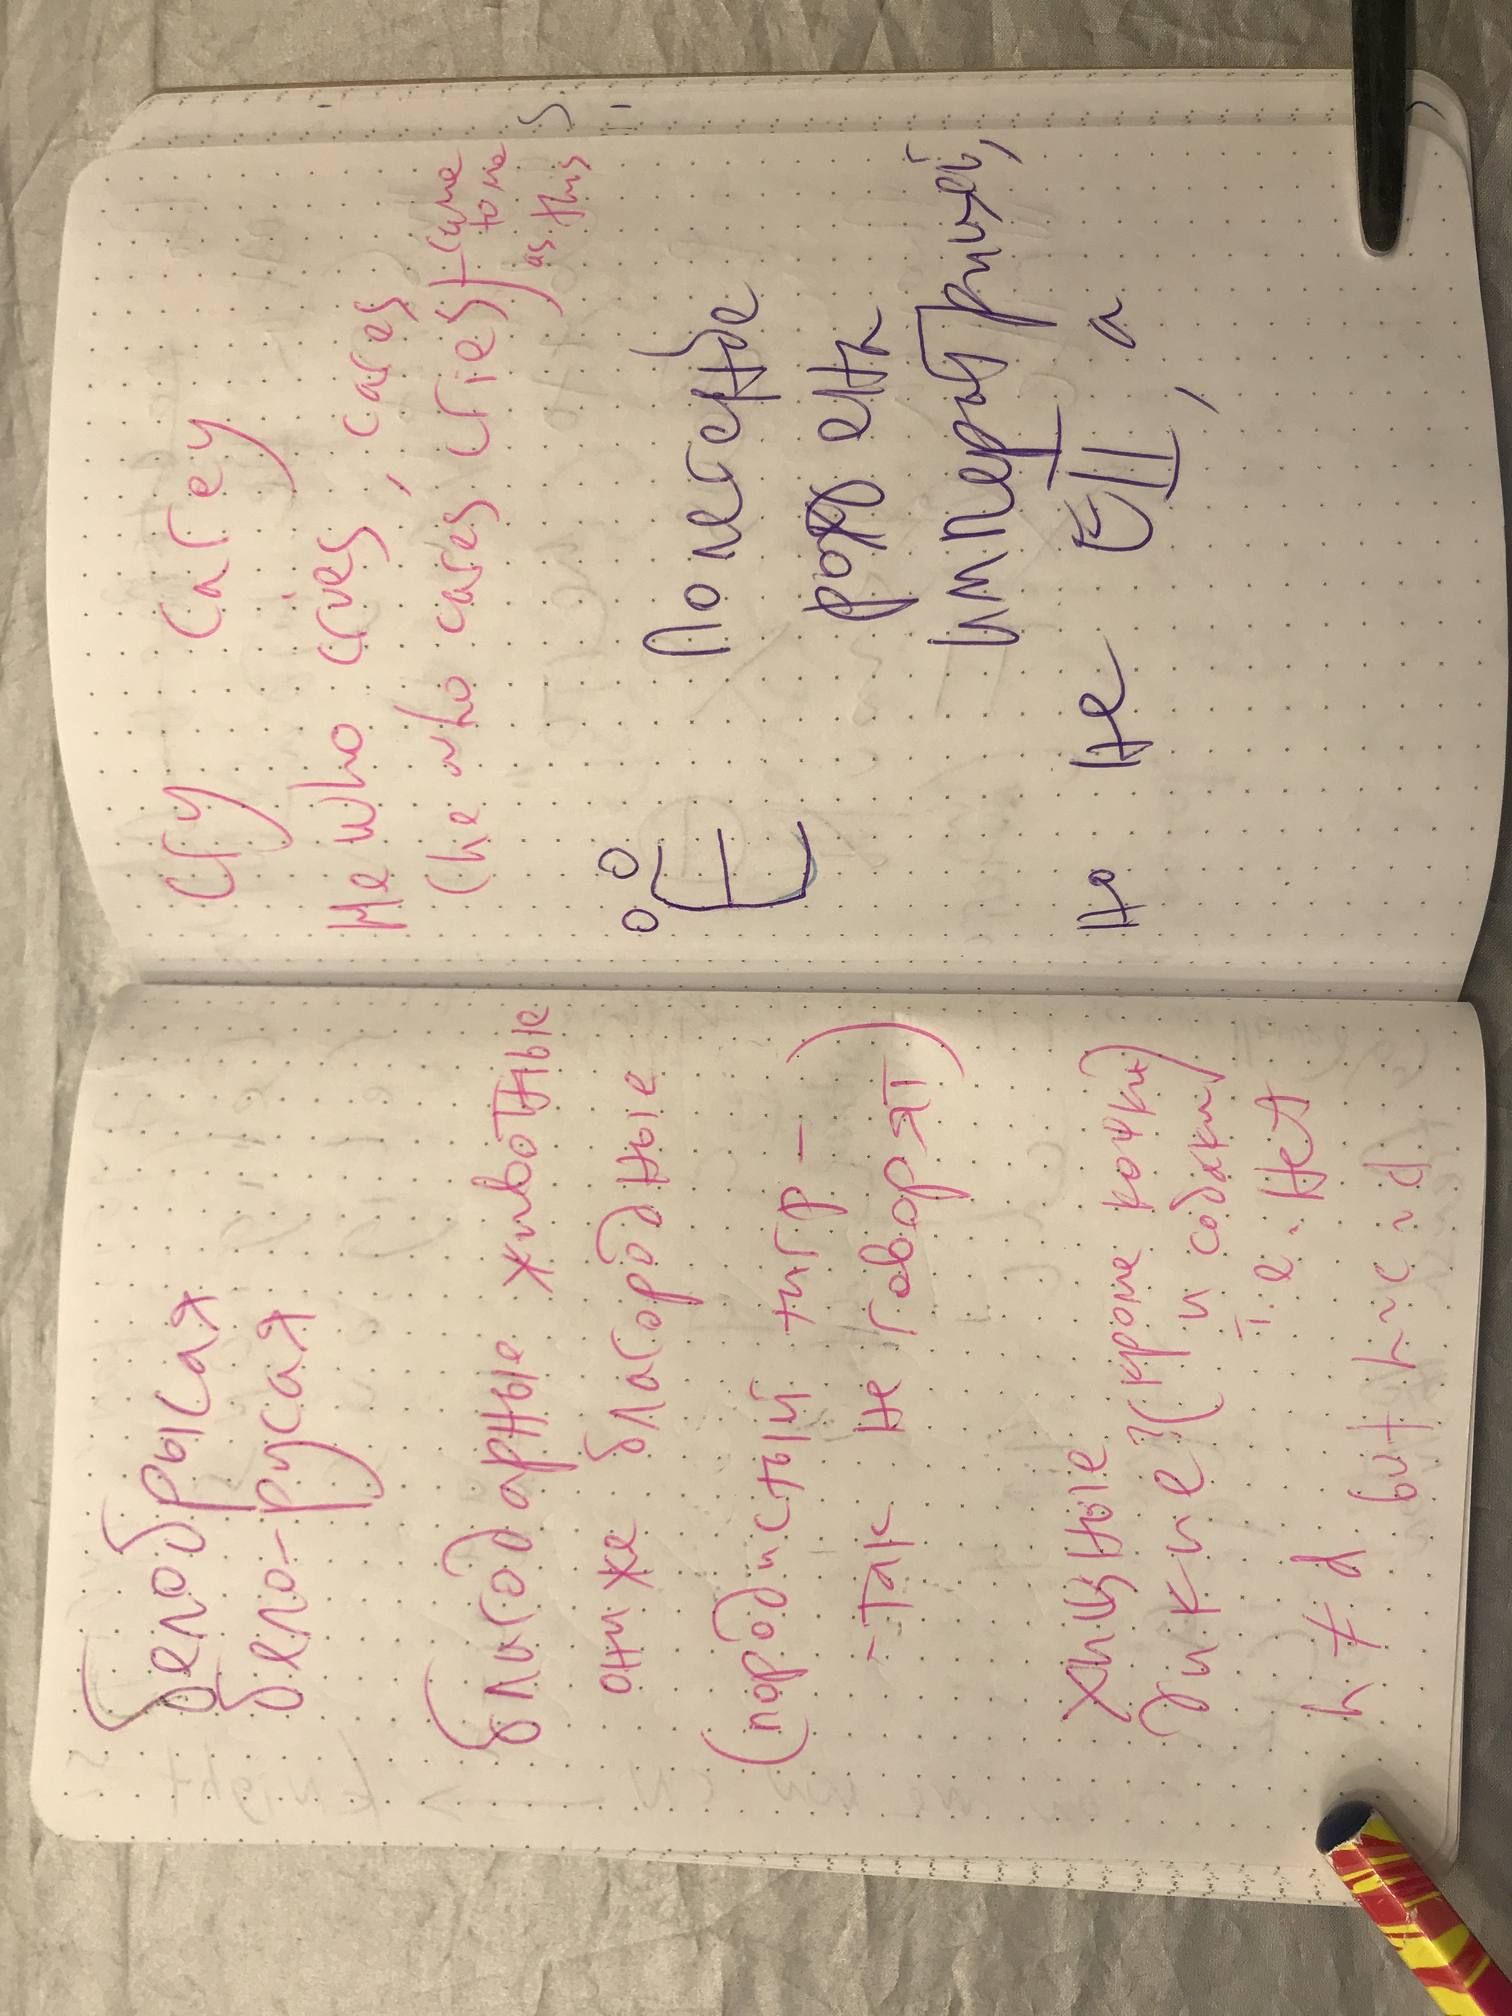 белобрысая
бело-русая
благодарные животные
они же благородные
(породистый тигр -
- так не говорят)
хищные
дикие? (кроме кошки
и собаки)
т.е. нет
h ≠ d
but h ~ c ~ d
Cry Carey
He who cries, cares
(he who cares cries)
came
to me
as this
Ё
По легенде
рождена
императрицей,
но не ЕП, а